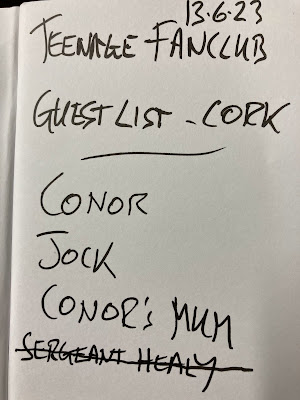 13.6.23
TEENAGE FANCLUB
GUEST LIST - CORK
CONOR
JOCK
CONOR'S MUM
SERGEANT HEALY